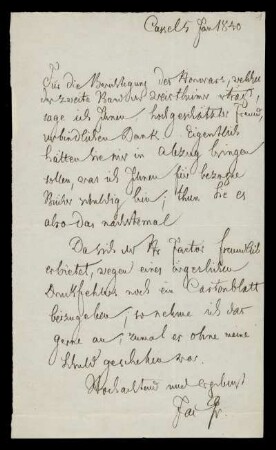 Cassel 5 Jan 1840
Für die Berichtigung des Honorars, welches
der zweite Band der weisthümer etrug,
sage ich Ihnen, hochgeschätzter Freund,
verbindlichen Dank. Eigentlich
hätten Sie mir in abzug bringen
sollen, was ich Ihnen für bezogne
Bücher schuldig bin; thun Sie es
also das nächstemal
Da sich der Hr Factor freundlich
erbietet, wegen eines ärgerlichen
Druckfehlers noch ein Cartonblatt
beizugeben, so nehme ich das
gerne an, zumal er ohne meine
Schuld geschehen war.
Hochachtend und ergebenst
Jac Gr.